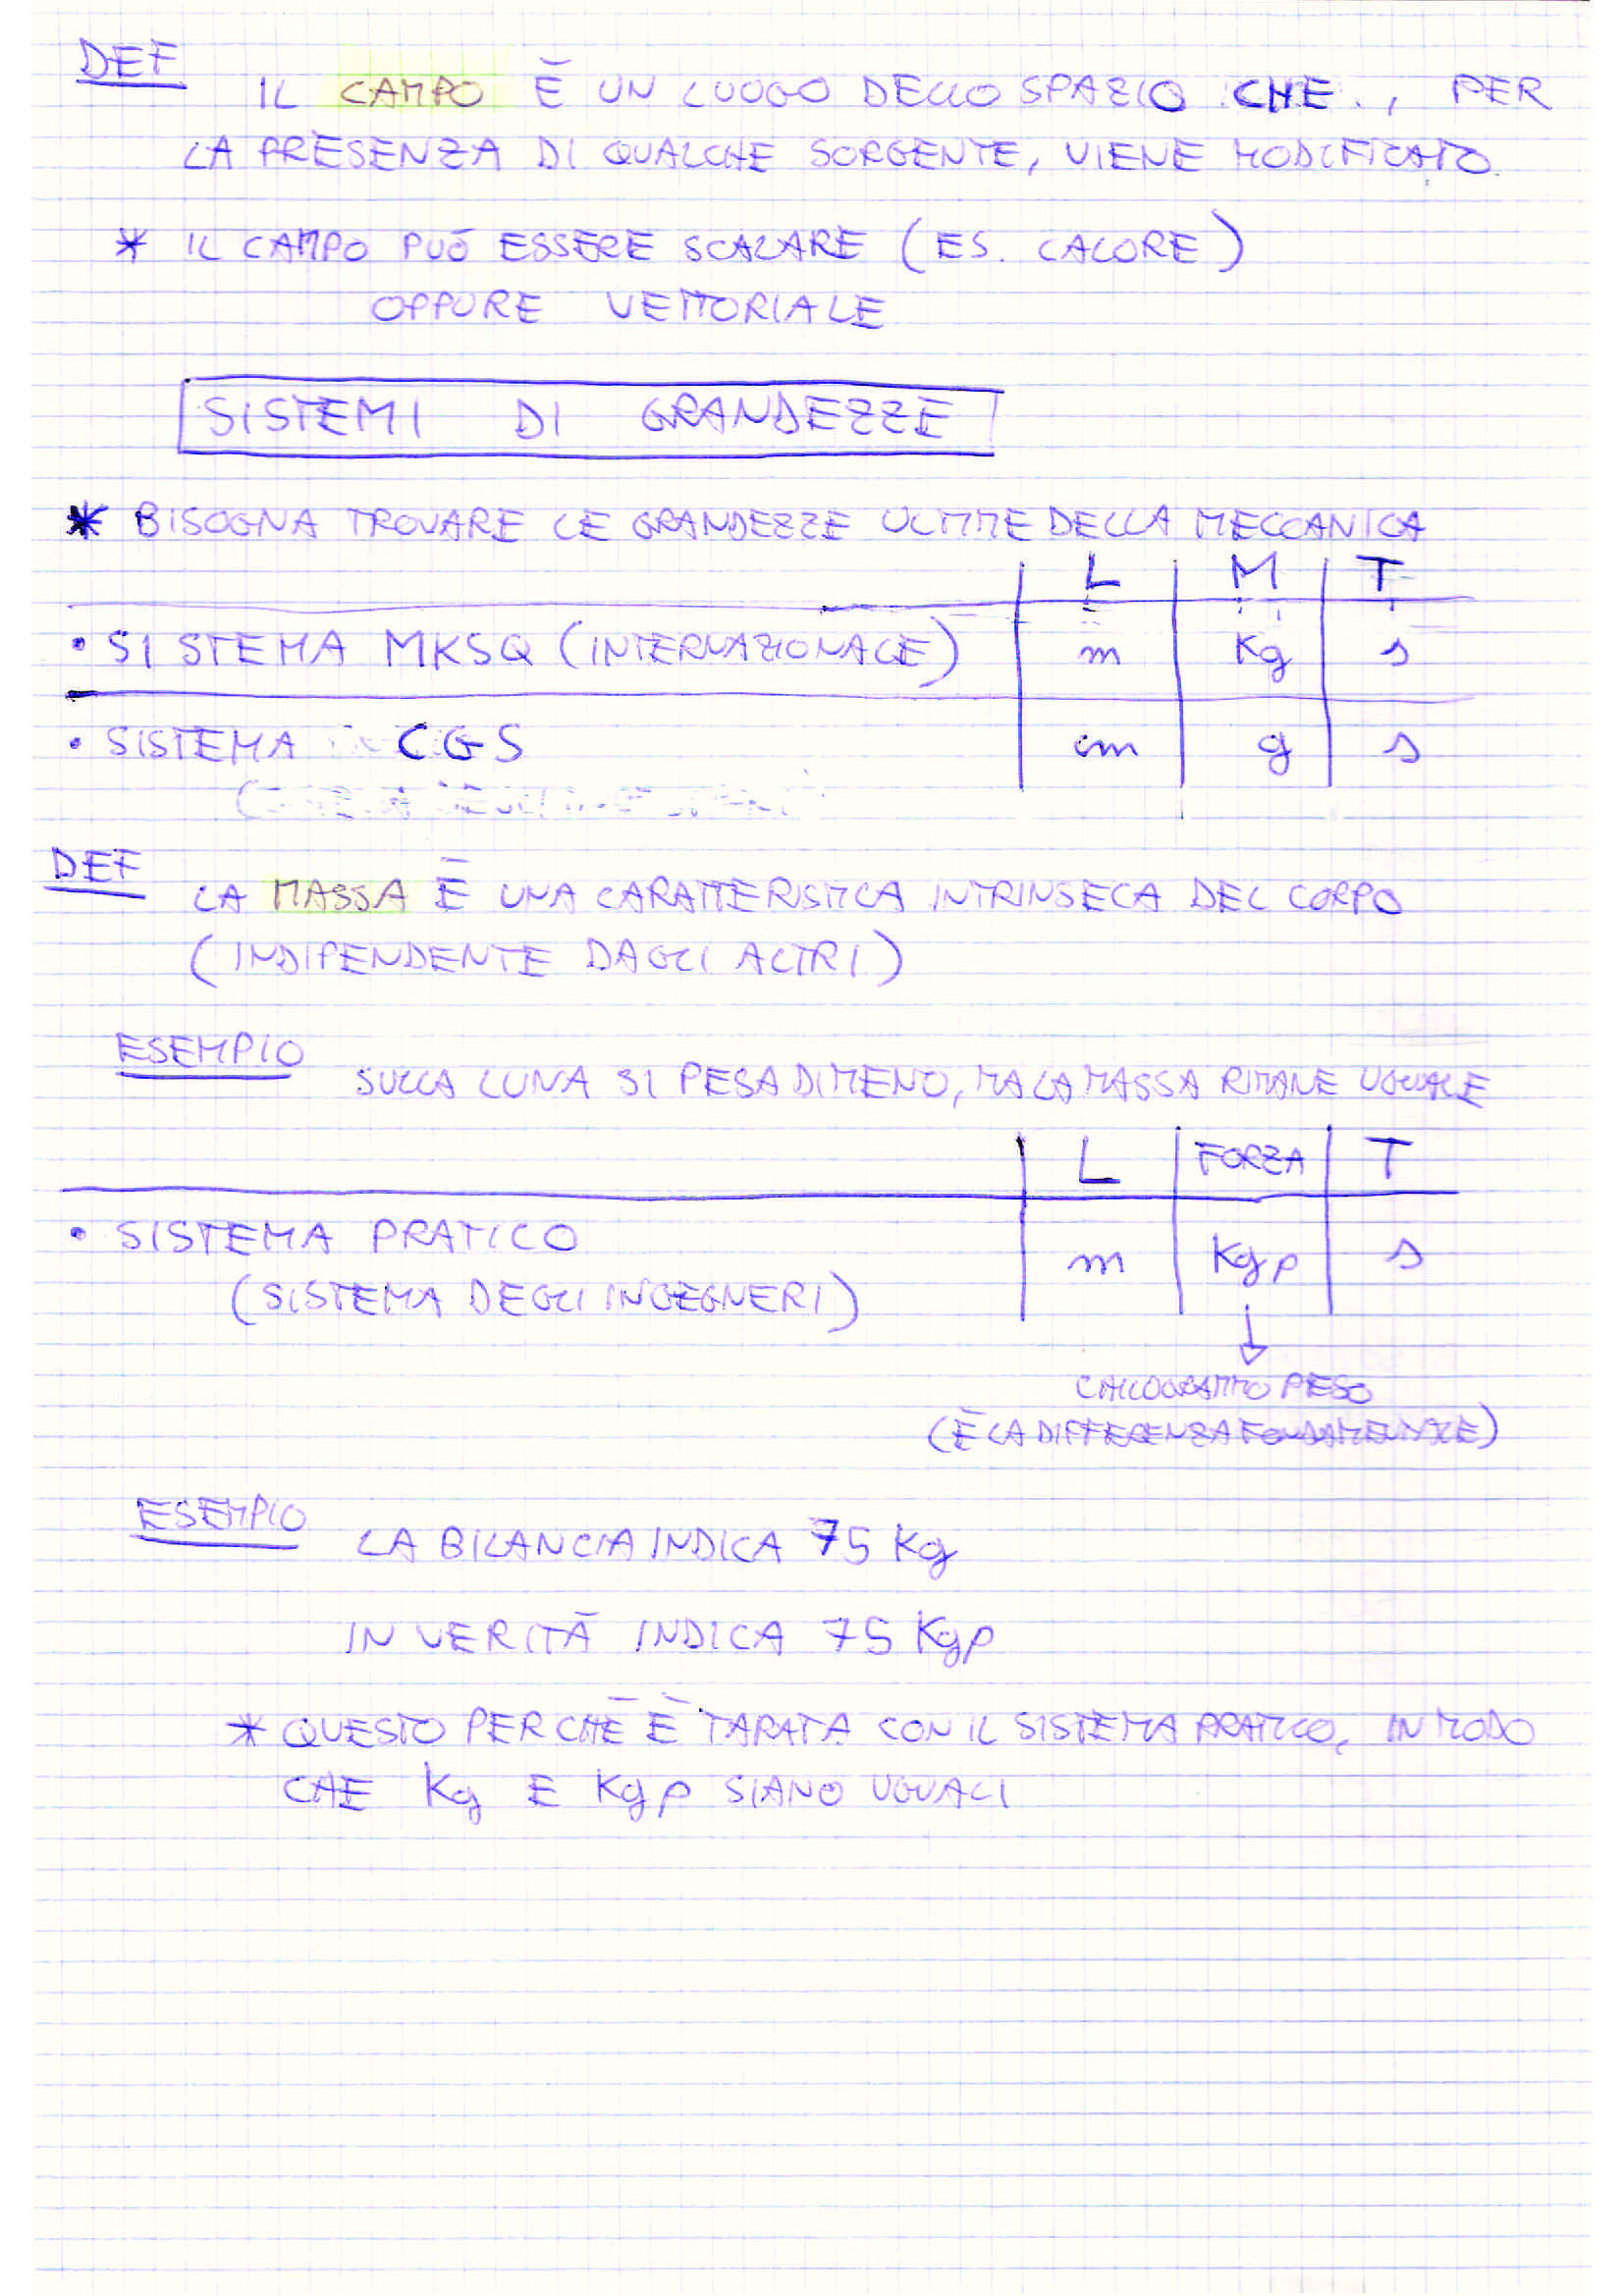 DEF
IL CAMPO È UN LUOGO DELLO SPAZIO CHE, PER
LA PRESENZA DI QUALCHE SORGENTE, VIENE MODIFICATO.
* IL CAMPO PUÒ ESSERE SCALARE (ES. CALORE)
OPPURE VETTORIALE
SISTEMI DI GRANDEZZE
* BISOGNA TROVARE LE GRANDEZZE ULTIME DELLA MECCANICA
L M T
• SISTEMA MKSQ (INTERNAZIONALE) m Kg s
• SISTEMA CGS cm g s
DEF
LA MASSA È UNA CARATTERISTICA INTRINSECA DEL CORPO
(INDIPENDENTE DAGLI ALTRI)
ESEMPIO
SULLA LUNA SI PESA DI MENO, MA LA MASSA RIMANE UGUALE
L FORZA T
• SISTEMA PRATICO m Kgp s
(SISTEMA DEGLI INGEGNERI)
CHILOGRAMMO PESO
(È LA DIFFERENZA FONDAMENTALE)
ESEMPIO
LA BILANCIA INDICA 75 Kg
IN VERITÀ INDICA 75 Kgp
* QUESTO PERCHÈ È TARATA CON IL SISTEMA PRATICO, IN MODO
CHE Kg E Kgp SIANO UGUALI